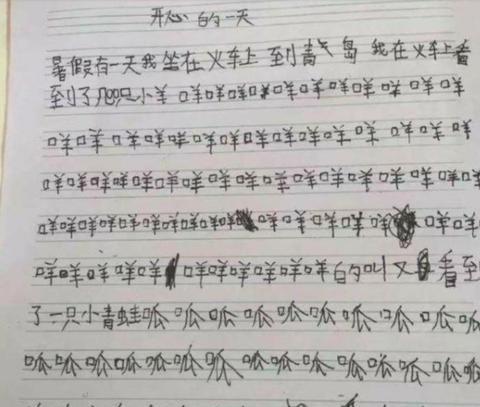 开心的一天
暑假有一天我坐在火车上到青岛我在火车上看
到了几只小羊咩咩咩咩咩咩咩咩咩咩咩咩
咩咩咩咩咩咩咩咩咩咩咩咩咩咩咩咩
咩咩咩咩咩咩咩咩咩咩咩咩咩咩咩咩咩咩
咩咩咩咩咩咩咩咩咩咩咩咩咩咩咩咩咩
咩咩咩咩咩咩咩咩咩咩咩的叫又看到
了一只小青蛙呱呱呱呱呱呱呱呱呱呱
呱呱呱呱呱呱呱呱呱呱呱呱呱